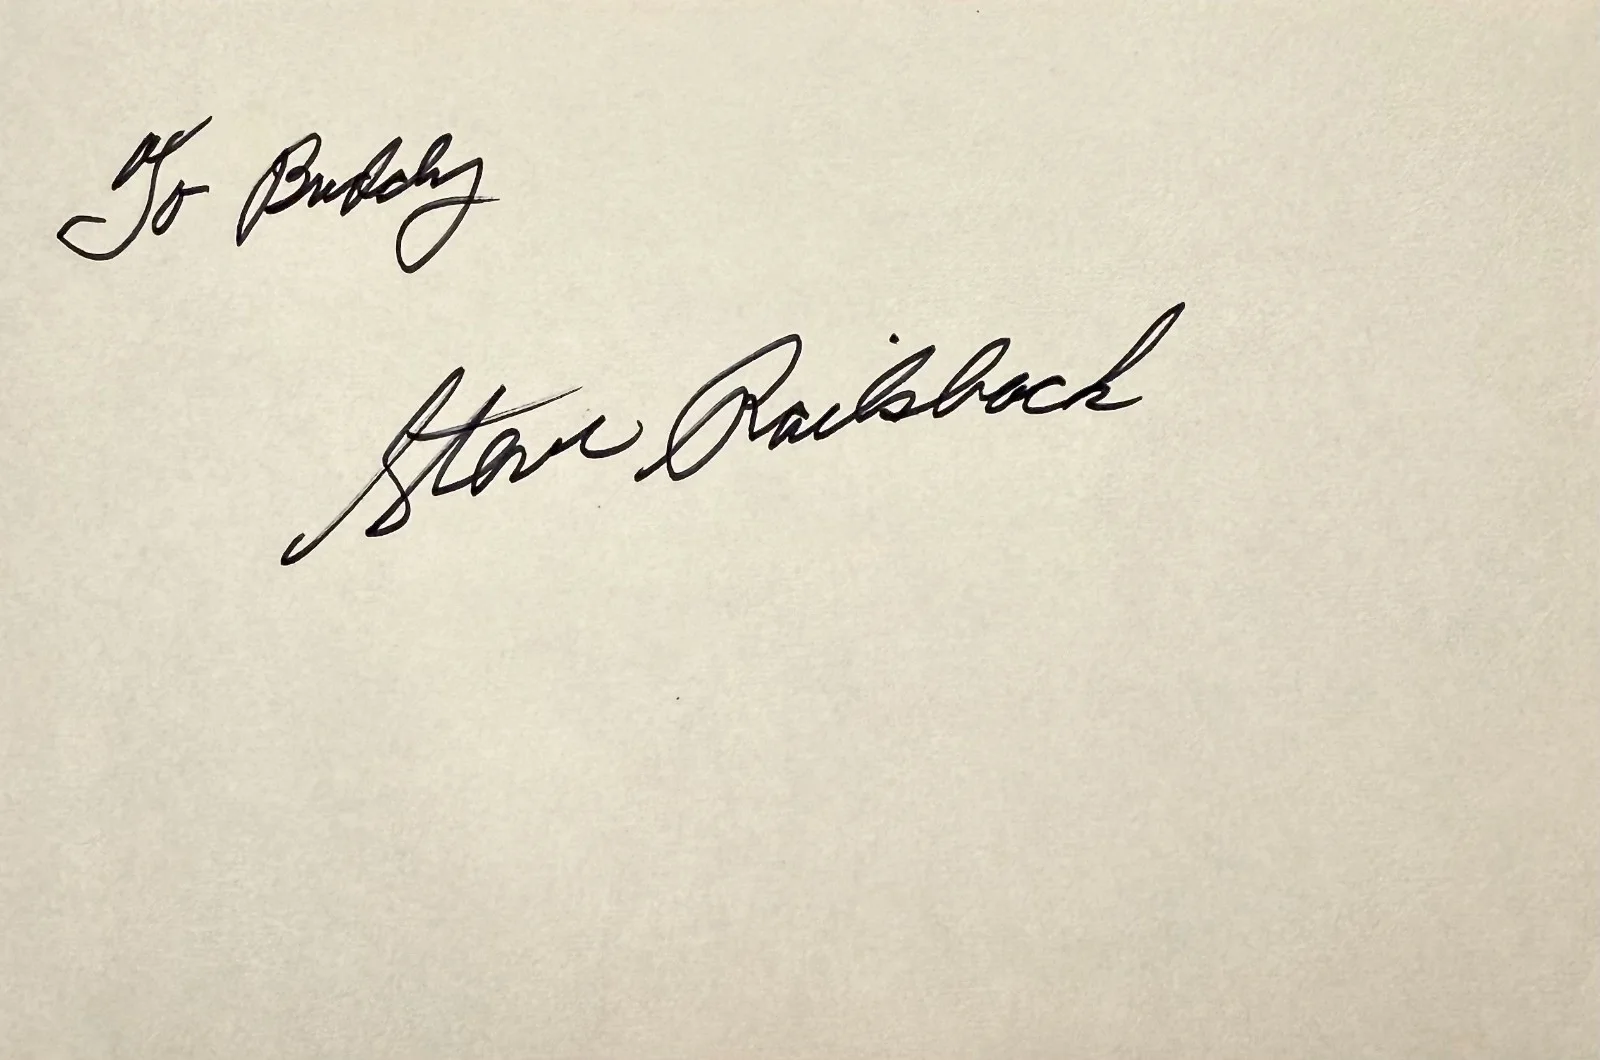 To Buddy
Steve Railsback